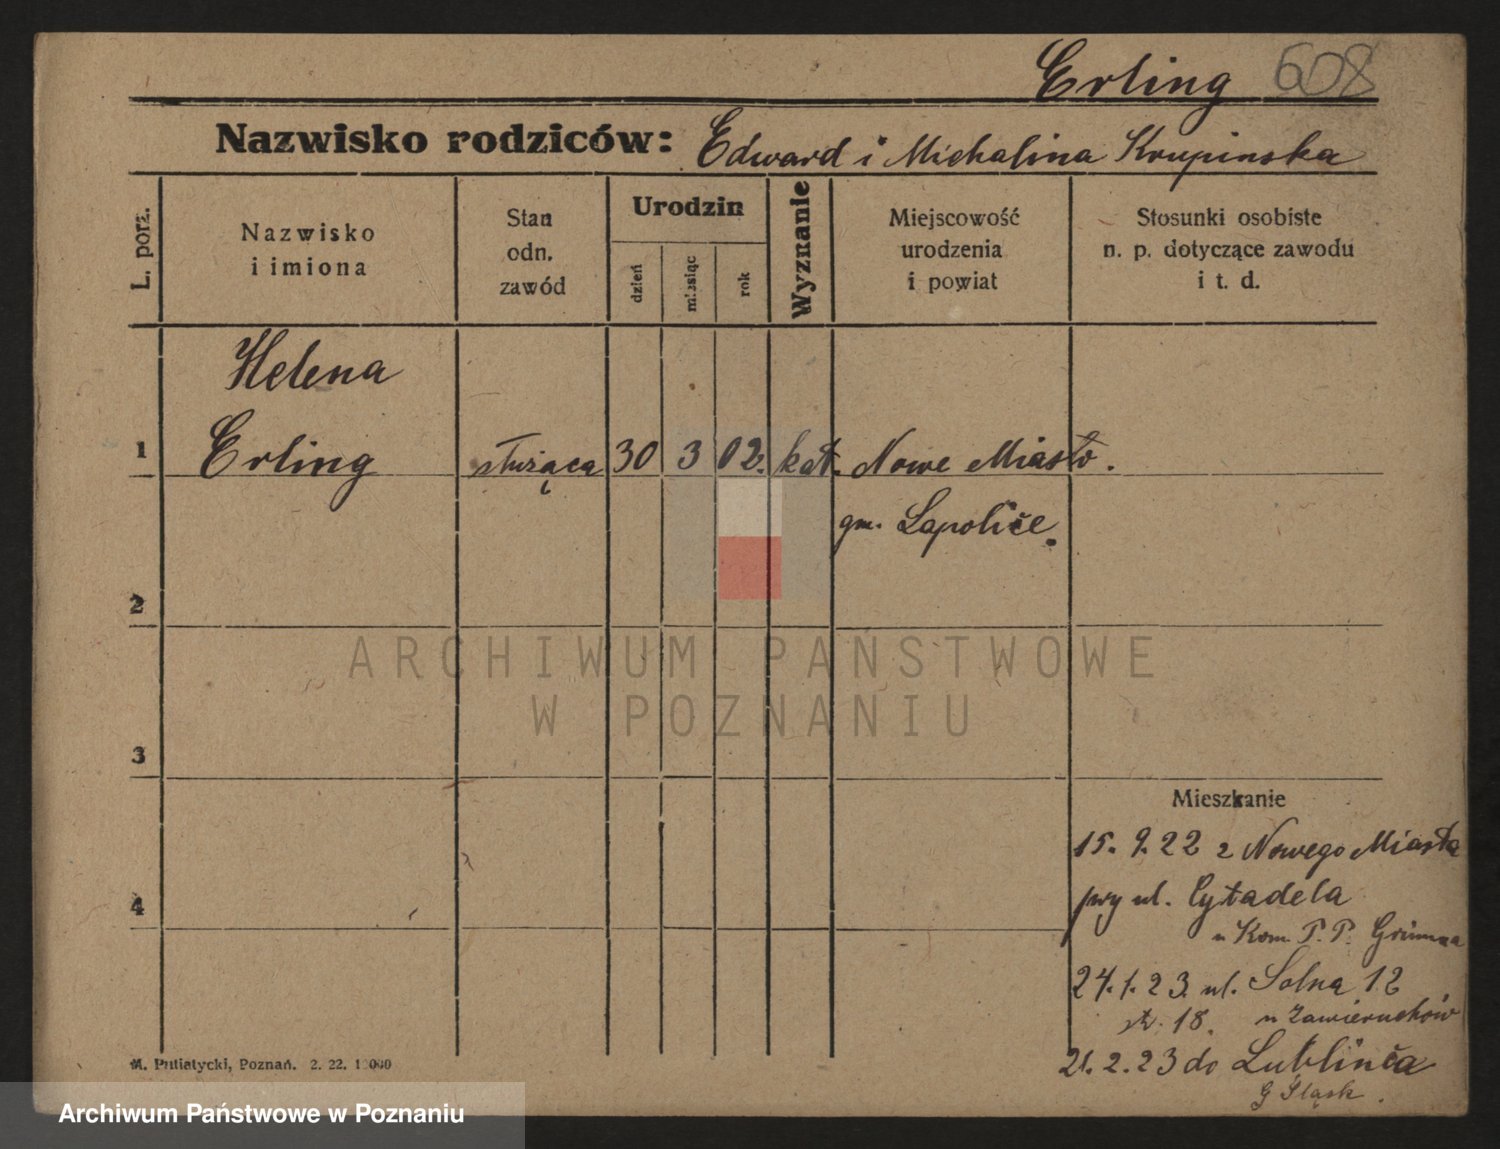 Erling 608
Nazwisko rodziców: Edward i Michalina Krupinska
L. porz.
Nazwisko
i imiona
Stan
odn.
zawód
Urodzin
dzień
miesiąc
rok
Wyznanie
Miejscowość
urodzenia
i powiat
Stosunki osobiste
n. p. dotyczące zawodu
i t. d.
Helena
1 Erling służąca 30 3 02. kat. Nowe Miasto.
gm. Lapolice.
2
ARCHIWUM PAŃSTWOWE
W POZNANIU
3
Mieszkanie
15. 9. 22 z Nowego Miasta
przy ul. Cytadela
4
u Kom. P. P. Grimma
24. 1. 23. ul. Solna 12
st. 18. u Zawieruchów
21. 2. 23 do Lublinca
G Śląsk.
M. Putiatycki, Poznań. 2. 22.
Archiwum Państwowe w Poznaniu